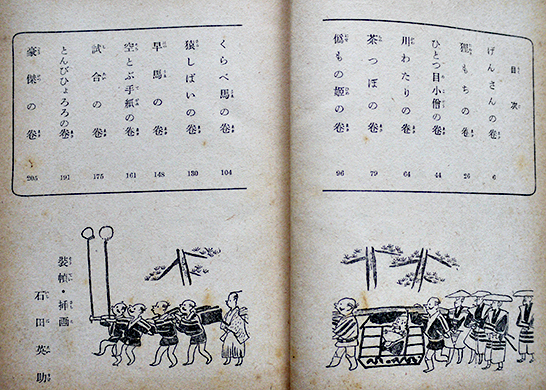 目次
げんさんの巻 6
狸もちの巻 24
ひとつ目小僧の巻 44
川わたりの巻 64
茶つぼの巻 79
偽もの姫の巻 96
くらべ馬の巻 104
猿しばいの巻 130
早馬の巻 148
空とぶ手紙の巻 161
試合の巻 175
とんびひょろろの巻 191
豪傑の巻 205
装幀・挿画
石田英助